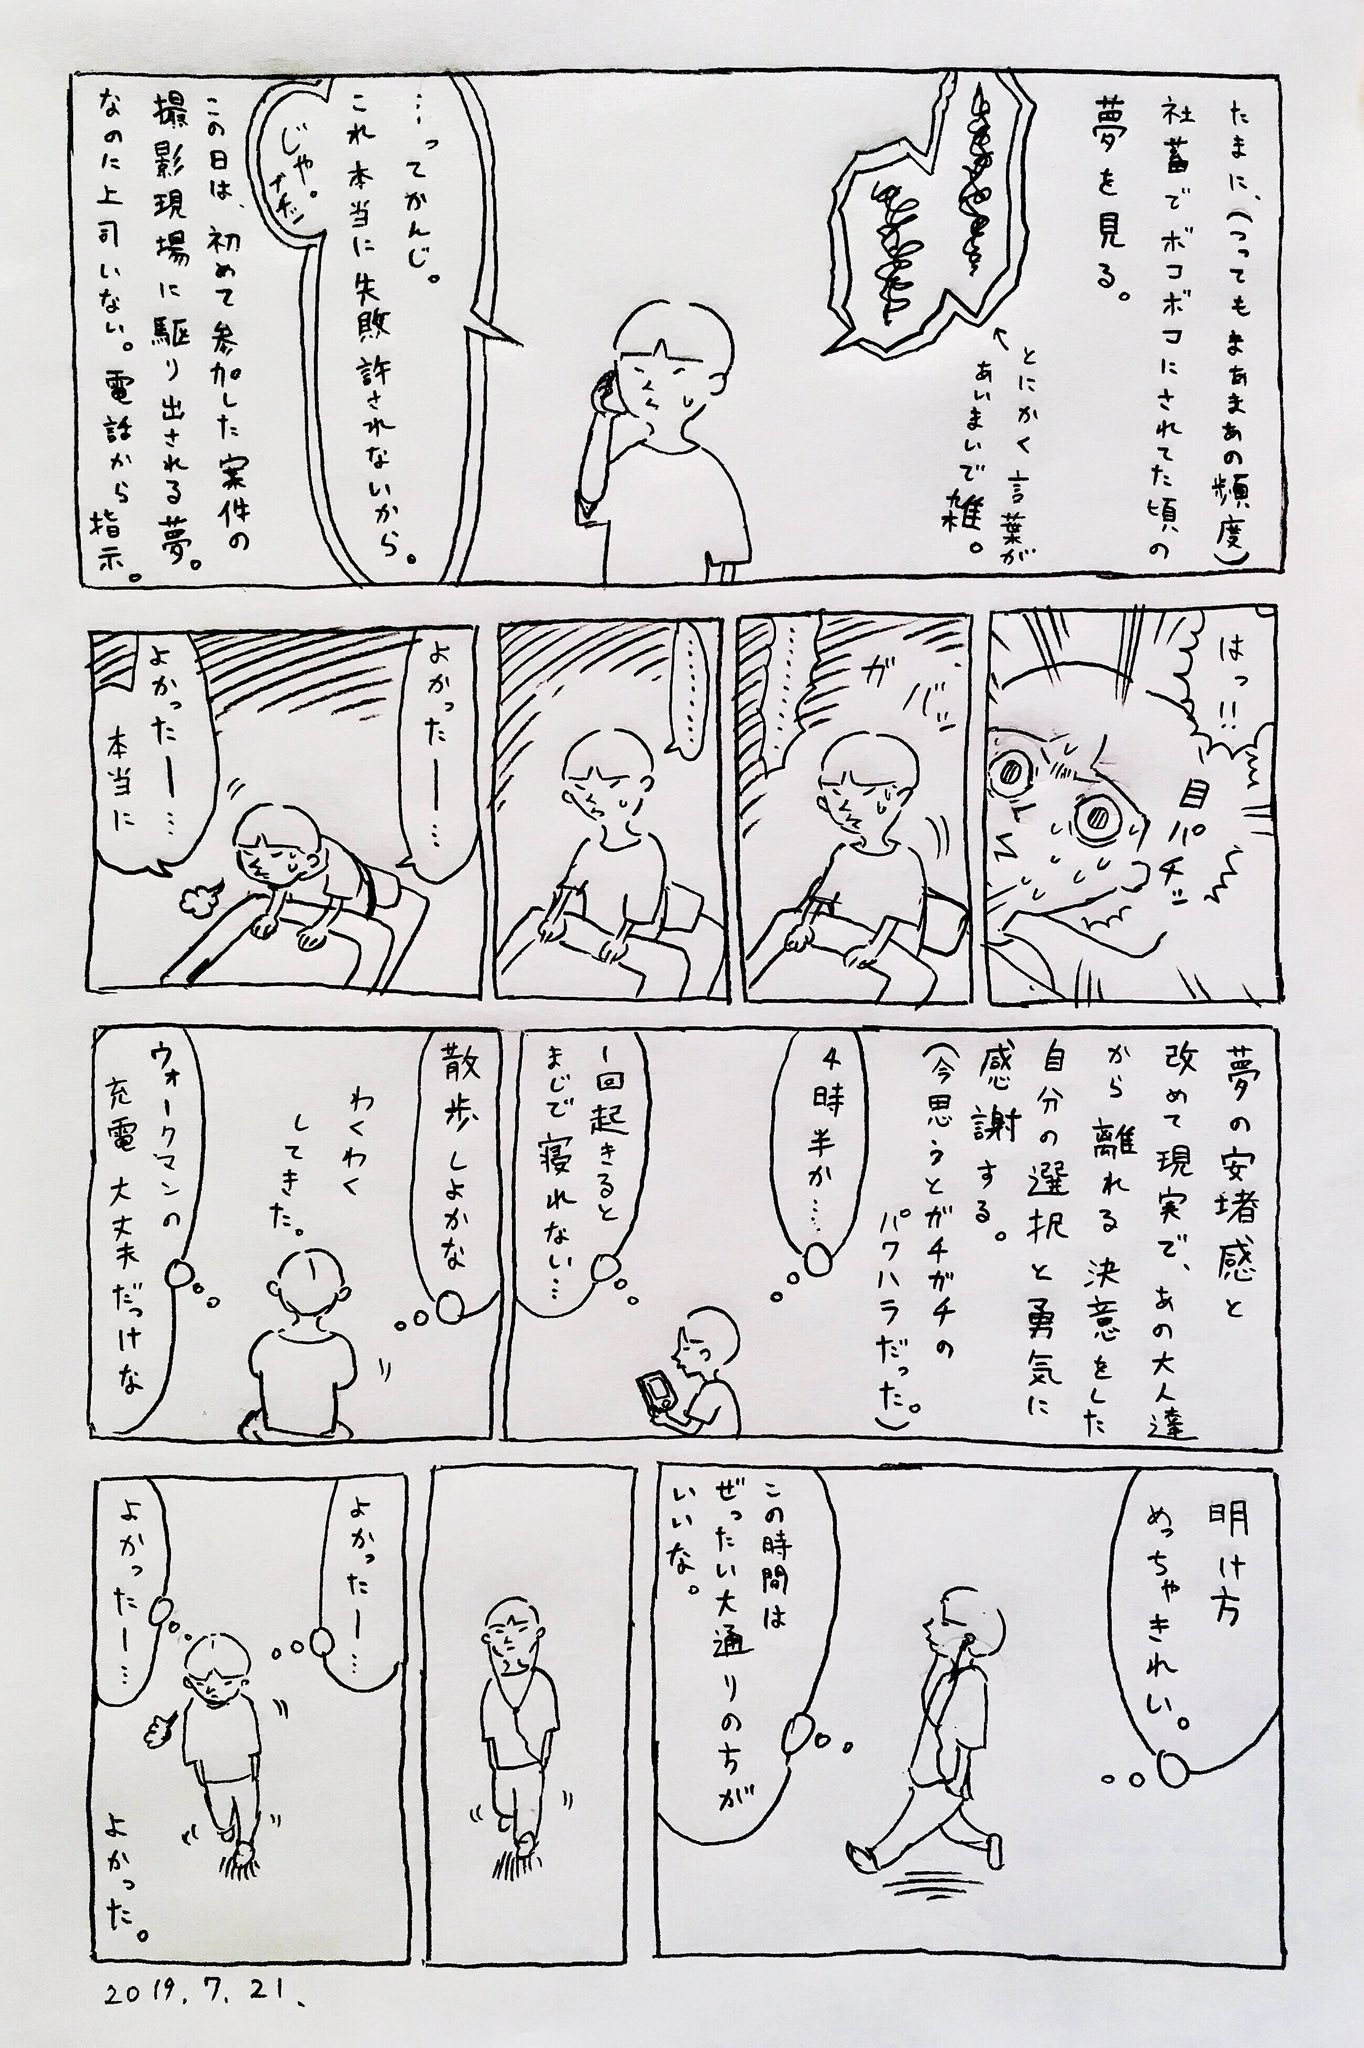 たまに、(つってもまあまあの頻度)
社畜でボコボコにされてた頃の
夢を見る。
とにかく言葉が
あいまいで雑。
…ってかんじ。
これ本当に失敗許されないから。
じゃ。
ブチッ
この日は、初めて参加した案件の
撮影現場に駆り出される夢。
なのに上司いない。電話から指示。
はっ!!
目パチッ
ガバッ
………
………
よかったー…
よかったー…
本当に
夢の安堵感と
改めて現実で、あの大人達
から離れる決意をした
自分の選択と勇気に
感謝する。
(今思うとガチガチの
パワハラだった。)
4時半か…
1回起きると
まじで寝れない…
散歩しよかな
わくわく
してきた。
ウォークマンの
充電大丈夫だっけな
明け方
めっちゃきれい。
この時間は
ぜったい大通りの方が
いいな。
よかったー…
よかったー…
よかった。
2019.7.21.